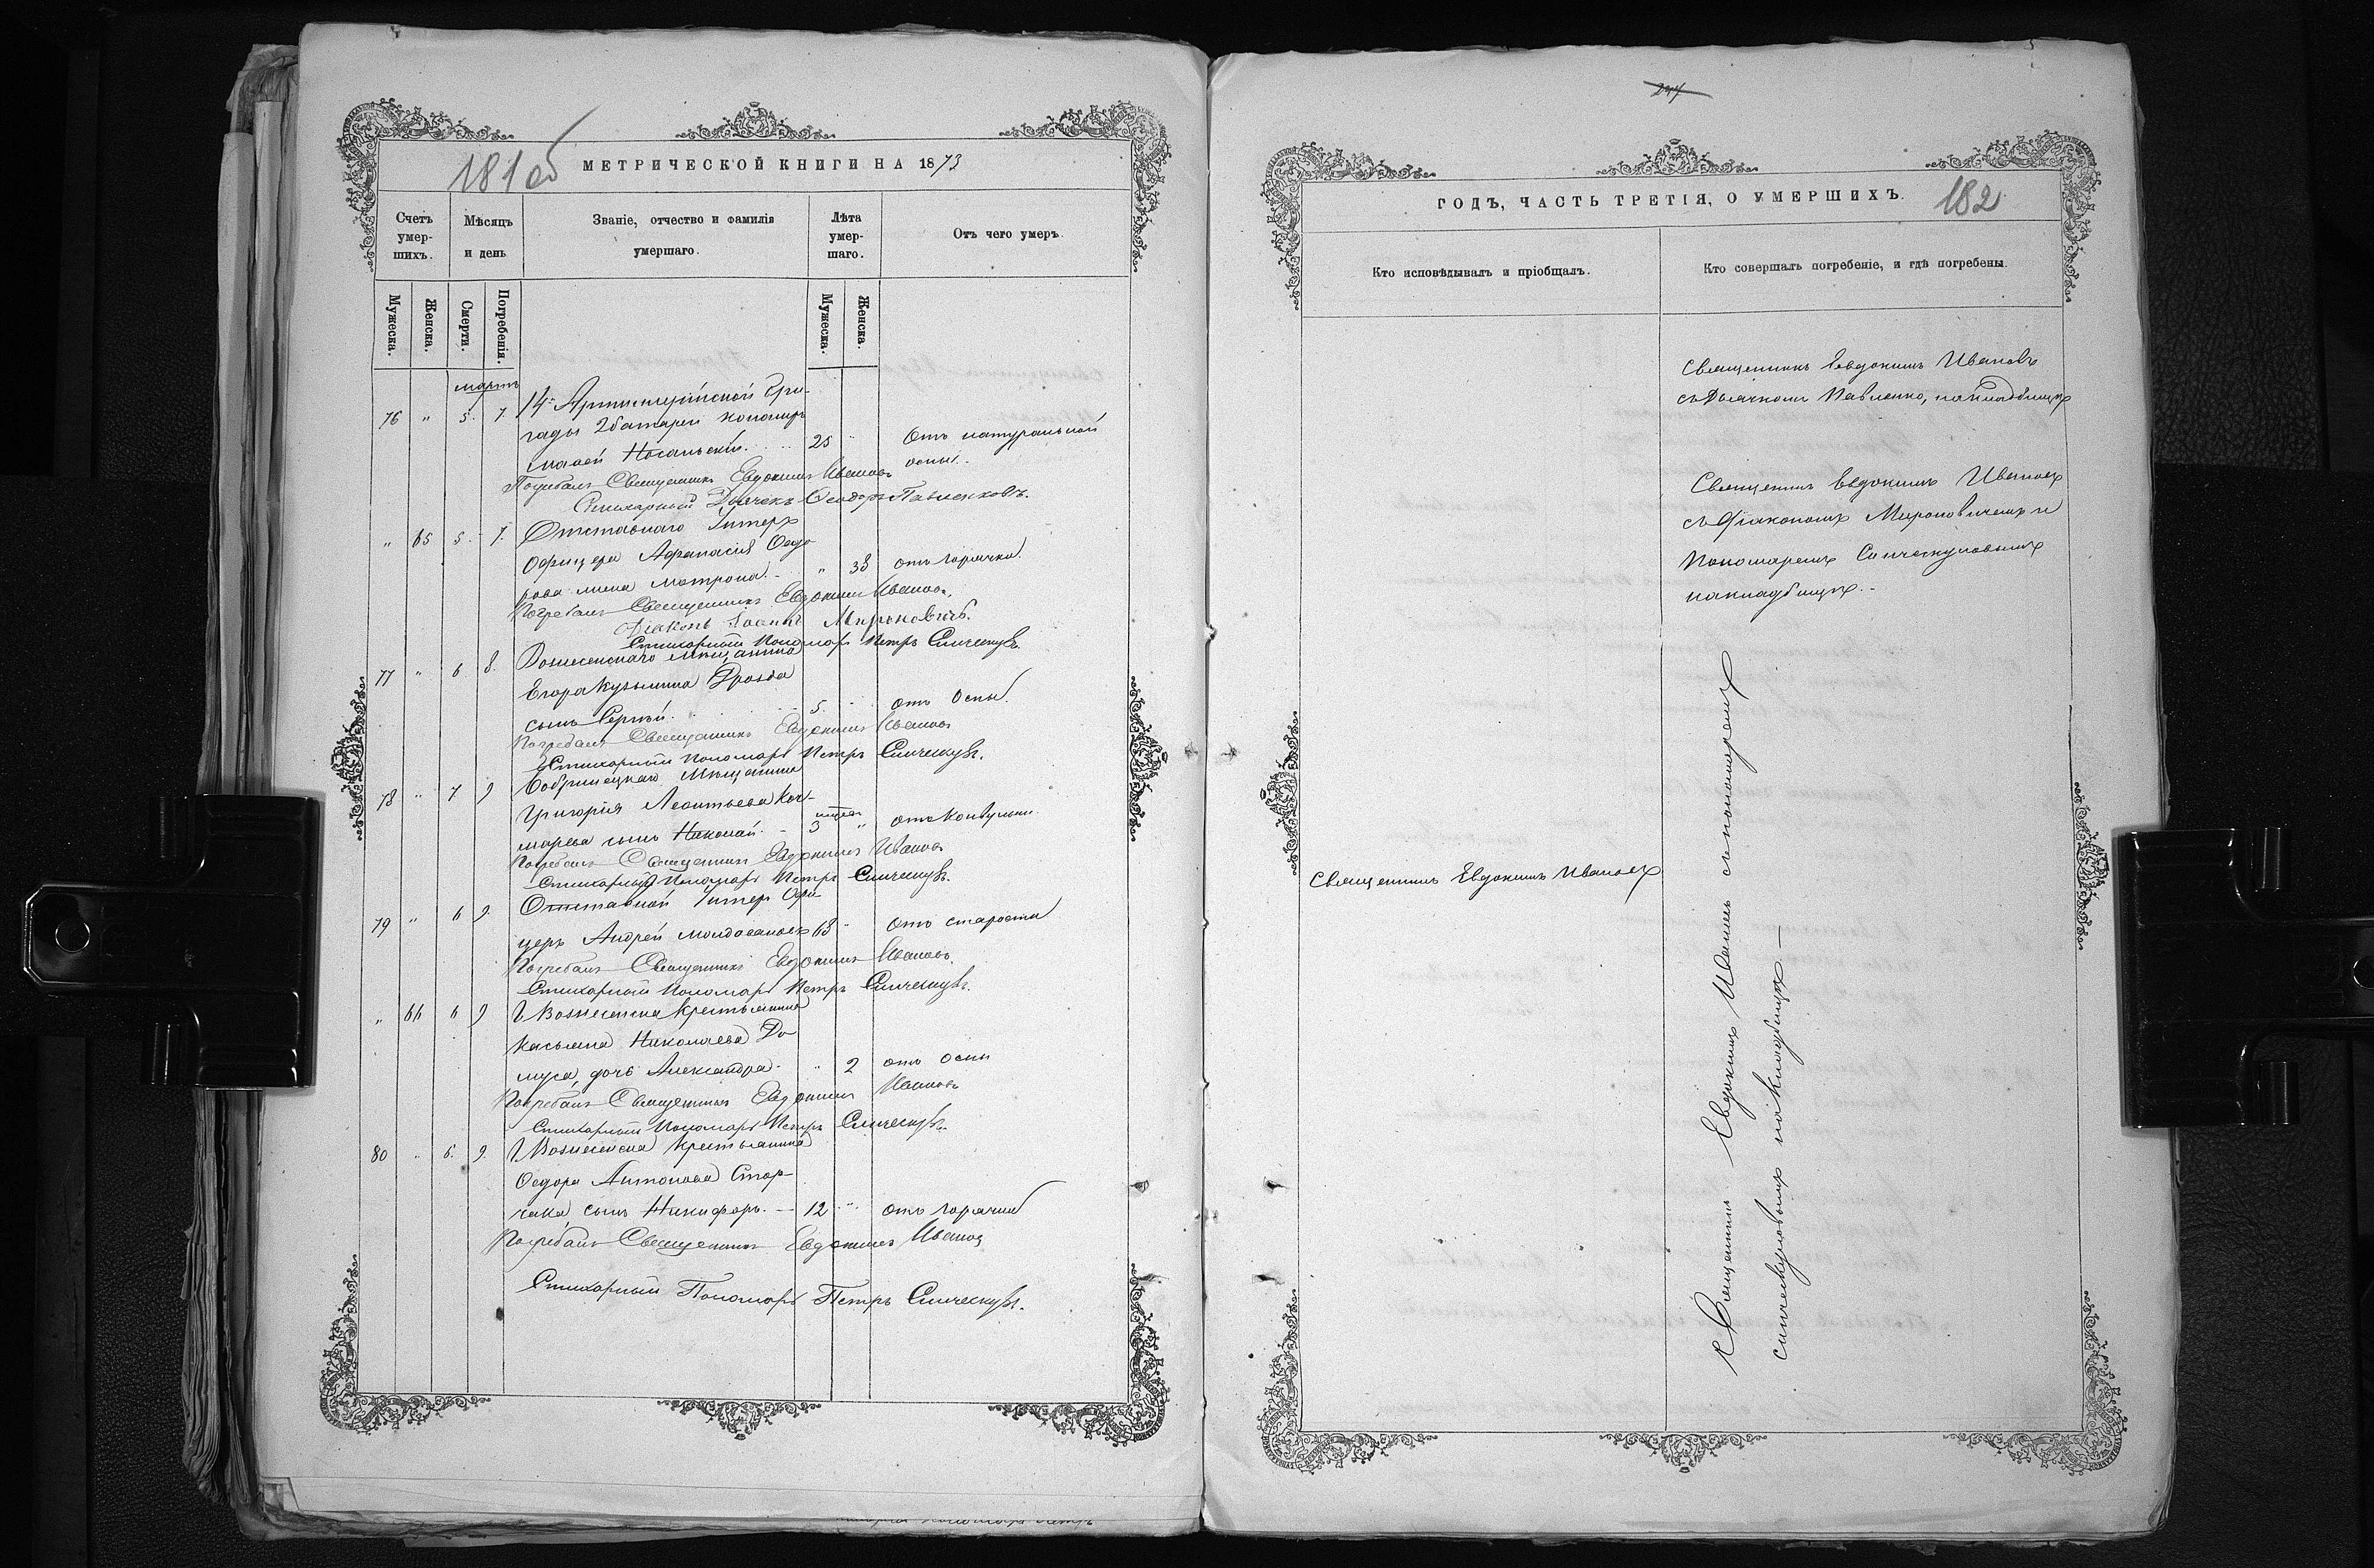 181об
МЕТРИЧЕСКОЙ КНИГИ НА 1873
Счетъ умер-шихъ.
Мѣсяцъ и день
Званіе, отчество и фамилія умершаго.
Лѣта умер-шаго.
Отъ чего умеръ.
Мужеска.
Женска.
Смерти.
Погребенія.
Мужеска.
Женска.
мартъ
76 " 5. 7. 14й Артиллерійской Бри-
гады 2 батареи
25 " Отъ натуральной
оспы.
Погребалъ Священникъ Евдокимъ Ивановъ
Стихарный Дьячекъ Ѳеодоръ Павленковъ.
" 65 5. 7. Отставнаго Унтеръ
Офицера Афанасія Ѳедо
рова жена Матрона. " 33 отъ горячки.
Погребалъ Священникъ Евдокимъ Ивановъ.
Діаконъ Іоаннъ Мироновичъ.
Стихарный Пономарь Петръ
77 " 6 8. Вознесенскаго мѣщанина
Егора Кузьмина Дрозда
сынъ Сергѣй. 5. " отъ Оспы.
Погребалъ Священникъ Евдокимъ Ивановъ
Стихарный Пономарь Петръ
78 " 7 9 Бобринецкаго Мѣщанина
Григорія Леонтьева
сынъ Николай. - 3 " отъ Конвульс.
Погребалъ Священникъ Евдокимъ Ивановъ
Стихарный Пономарь Петръ
79 " 6 9. Отставной Унтеръ Офи
церъ Андрей 63 " отъ старости
Погребалъ Священникъ Евдокимъ Ивановъ.
Стихарный Пономарь Петръ
" 66 6 9 Г. Вознесенска Крестьянина
Касьяна Николаева До
муса, дочь Александра. " 2 отъ оспы
Погребалъ Священникъ Евдокимъ Ивановъ
Стихарный Пономарь Петръ
80 " 6. 9. Г. Вознесенска Крестьянина
Ѳедора Антонова Стор-
чака, сынъ Никифоръ. - 12 " отъ горячки
Погребалъ Священникъ Евдокимъ Ивановъ
Стихарный Пономарь Петръ
ГОДЪ, ЧАСТЬ ТРЕТІЯ, О УМЕРШИХЪ.
182
Кто исповѣдывалъ и пріобщалъ.
Кто совершалъ погребеніе, и гдѣ погребены.
Священникъ Евдокимъ Ивановъ
съ Дьячкомъ Павленко, на кладбищѣ
Священникъ Евдокимъ Ивановъ
съ Діакономъ Мироновичемъ и
Пономаремъ
на кладбищѣ.
Священникъ Евдокимъ Ивановъ
Священникъ Евдокимъ Ивановъ съ пономаремъ
на кладбищѣ